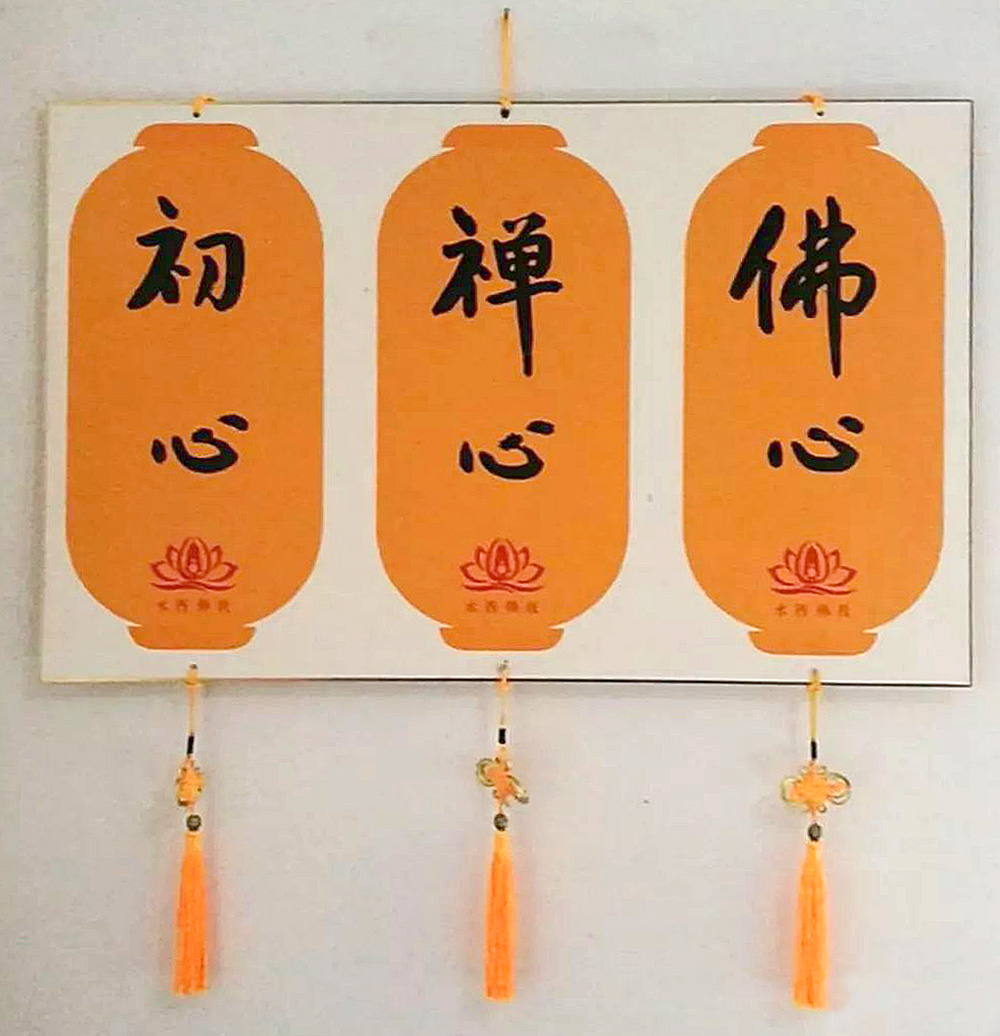 初心
禅心
佛心